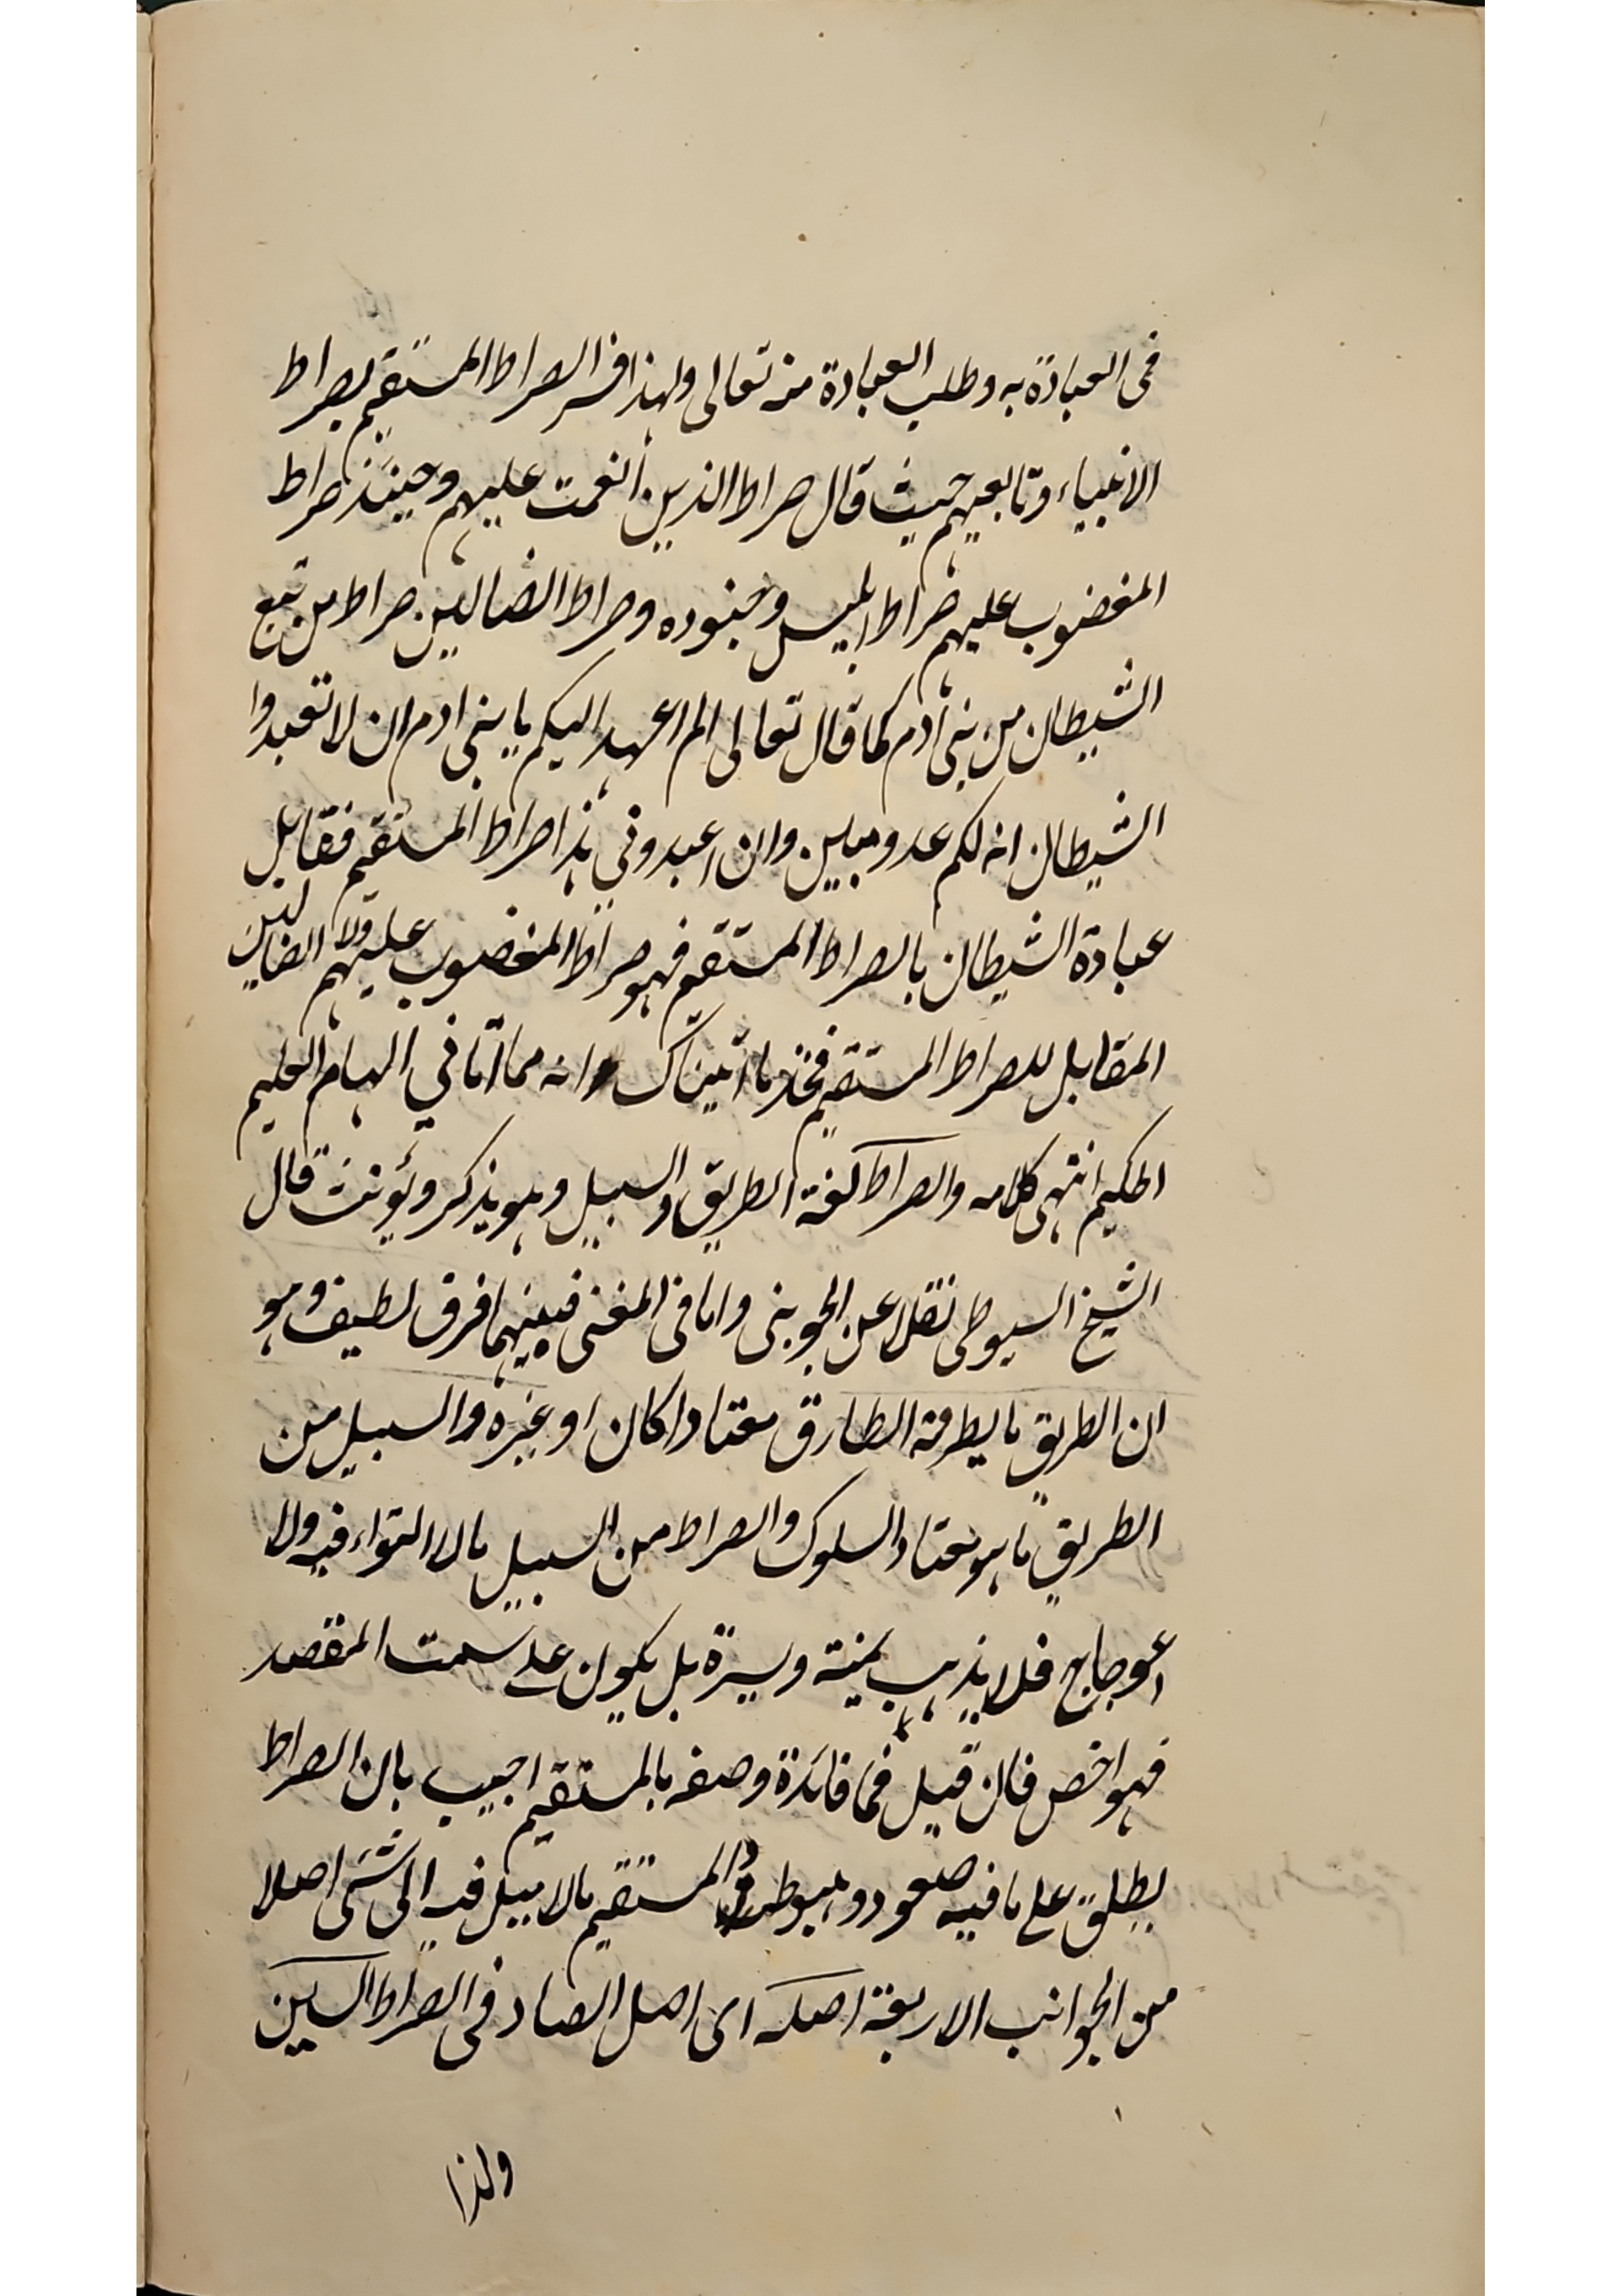 فى العبادة به وطلب العبادة منه تعالى ولهذا فسر الصراط المستقيم بصراط
الانبياء وتابعيهم حيث قال صراط الذين انعمت عليهم وحينئذ صراط
المغضوب عليهم صراط ابليس وجنوده وصراط الضالين صراط من تبع
الشيطان من بنى آدم كما قال تعالى الم اعهد اليكم يا بنى ادم ان لا تعبدوا
الشيطان انه لكم عدو مبين وان اعبدوني هذا صراط المستقيم فقابل
عبادة الشيطان بالصراط المستقيم فهو صراط المغضوب عليهم ولا الضالين
المقابل للصراط المستقيم فخذ ما اتيناك انه مما اتانى الهام العليم
الحكيم انتهى كلامه والصراط لغة الطريق والسبيل وهو يذكر ويؤنث قال
الشيخ السيوطى نقلا عن الجوينى واما فى المغنى فبينهما فرق لطيف وهو
ان الطريق ما يطرقه الطارق معتادا كان او غيره والسبيل من
الطريق ما هو معتاد السلوك والصراط من السبيل ما لا التواء فيه ولا
اعوجاج فلا يذهب يمنة ويسرة بل يكون على سمت المقصد
فهو اخص فان قيل فما فائدة وصفه بالمستقيم اجيب بان الصراط
يطلق على ما فيه صعود وهبوط والمستقيم ما لا يميل فيه الى شئ اصلا
من الجوانب الاربعة اصله اى اصل الصاد فى الصراط السين
ولذا